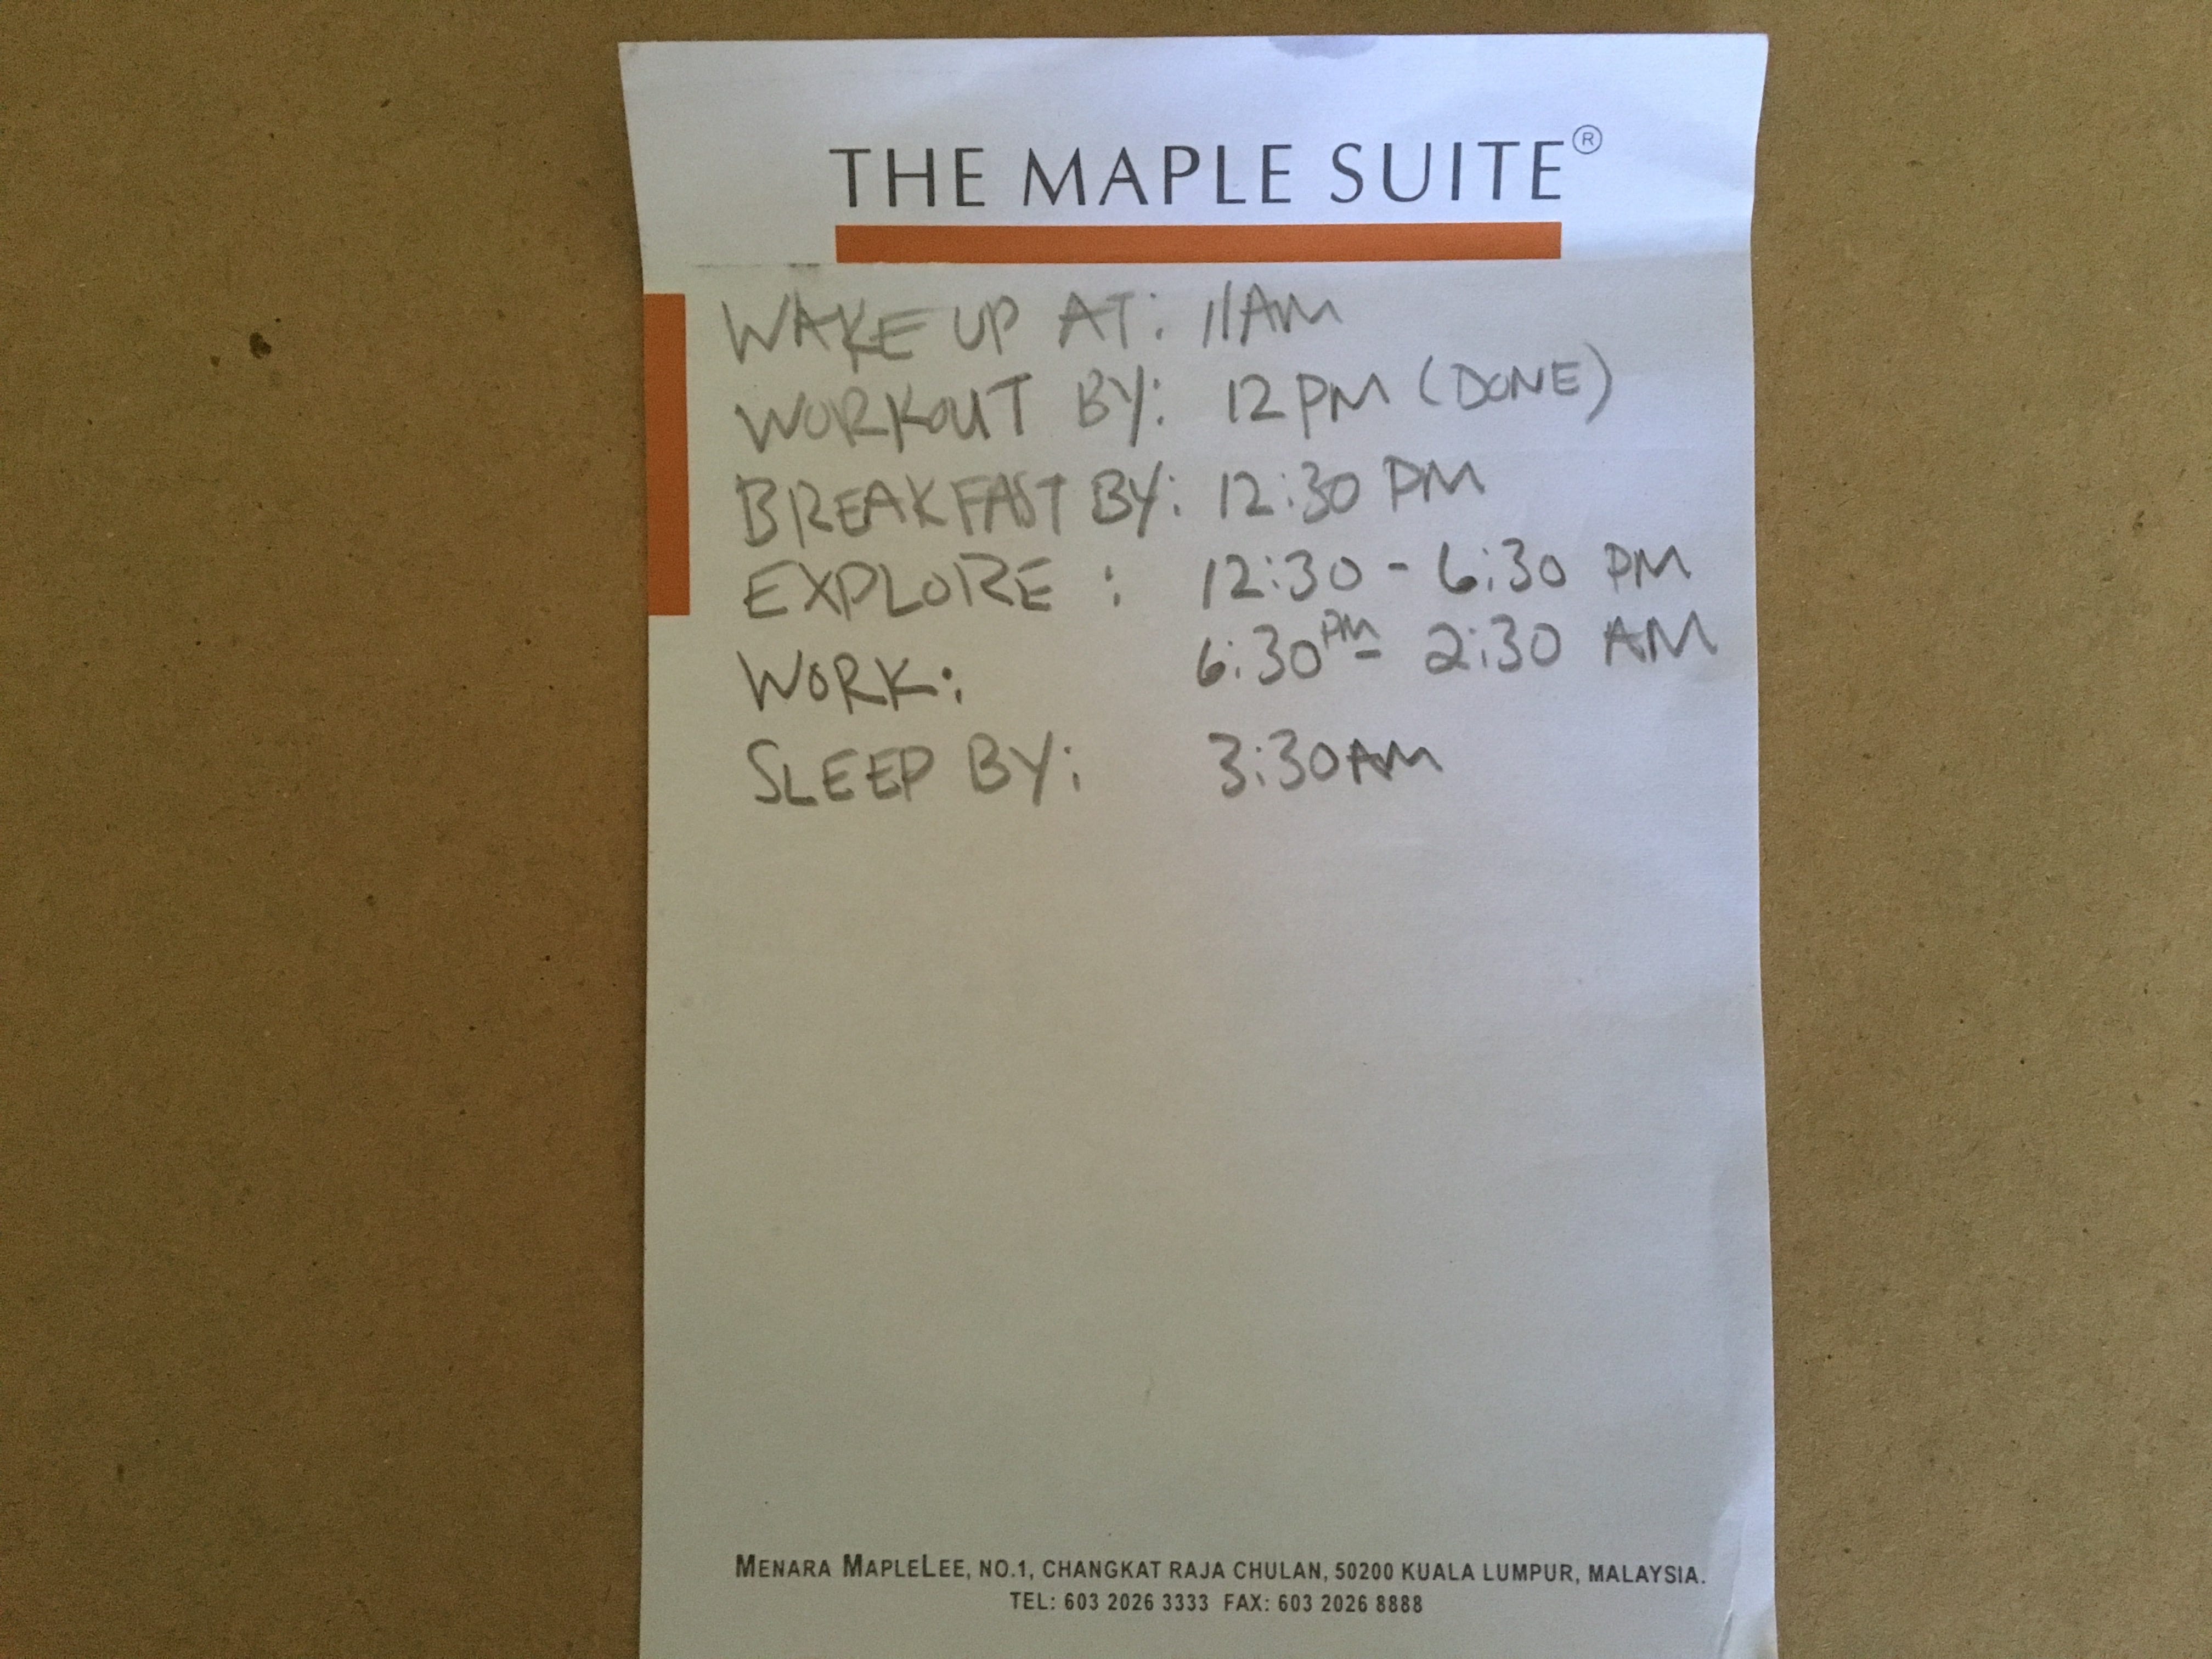 THE MAPLE SUITE®
WAKE UP AT: 11AM
WORKOUT BY: 12PM (DONE)
BREAKFAST BY: 12:30 PM
EXPLORE : 12:30 - 6:30 PM
WORK: 6:30PM - 2:30 AM
SLEEP BY: 3:30AM
MENARA MAPLELEE, NO.1, CHANGKAT RAJA CHULAN, 50200 KUALA LUMPUR, MALAYSIA.
TEL: 603 2026 3333 FAX: 603 2026 8888